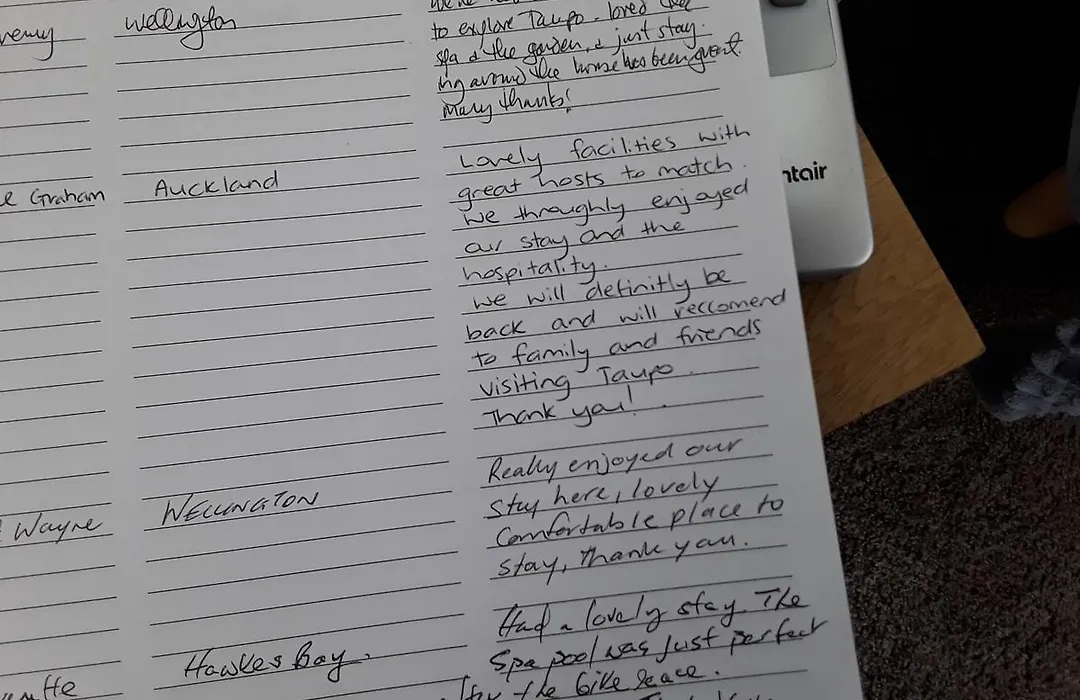 Wellington
to explore Taupo. loved the
spa & the garden, & just stay
ing around the house has been great.
Many thanks!
Graham
Auckland
Lovely facilities with
great hosts to match.
We throughly enjoyed
our stay and the
hospitality.
We will definitly be
back and will reccomend
to family and friends
visiting Taupo.
Thank you!
Wayne
WELLINGTON
Really enjoyed our
stay here, lovely
Comfortable place to
stay, thank you.
Hawkes Bay.
Had a lovely stay. The
Spa pool was just perfect
for the bike race.
ntair